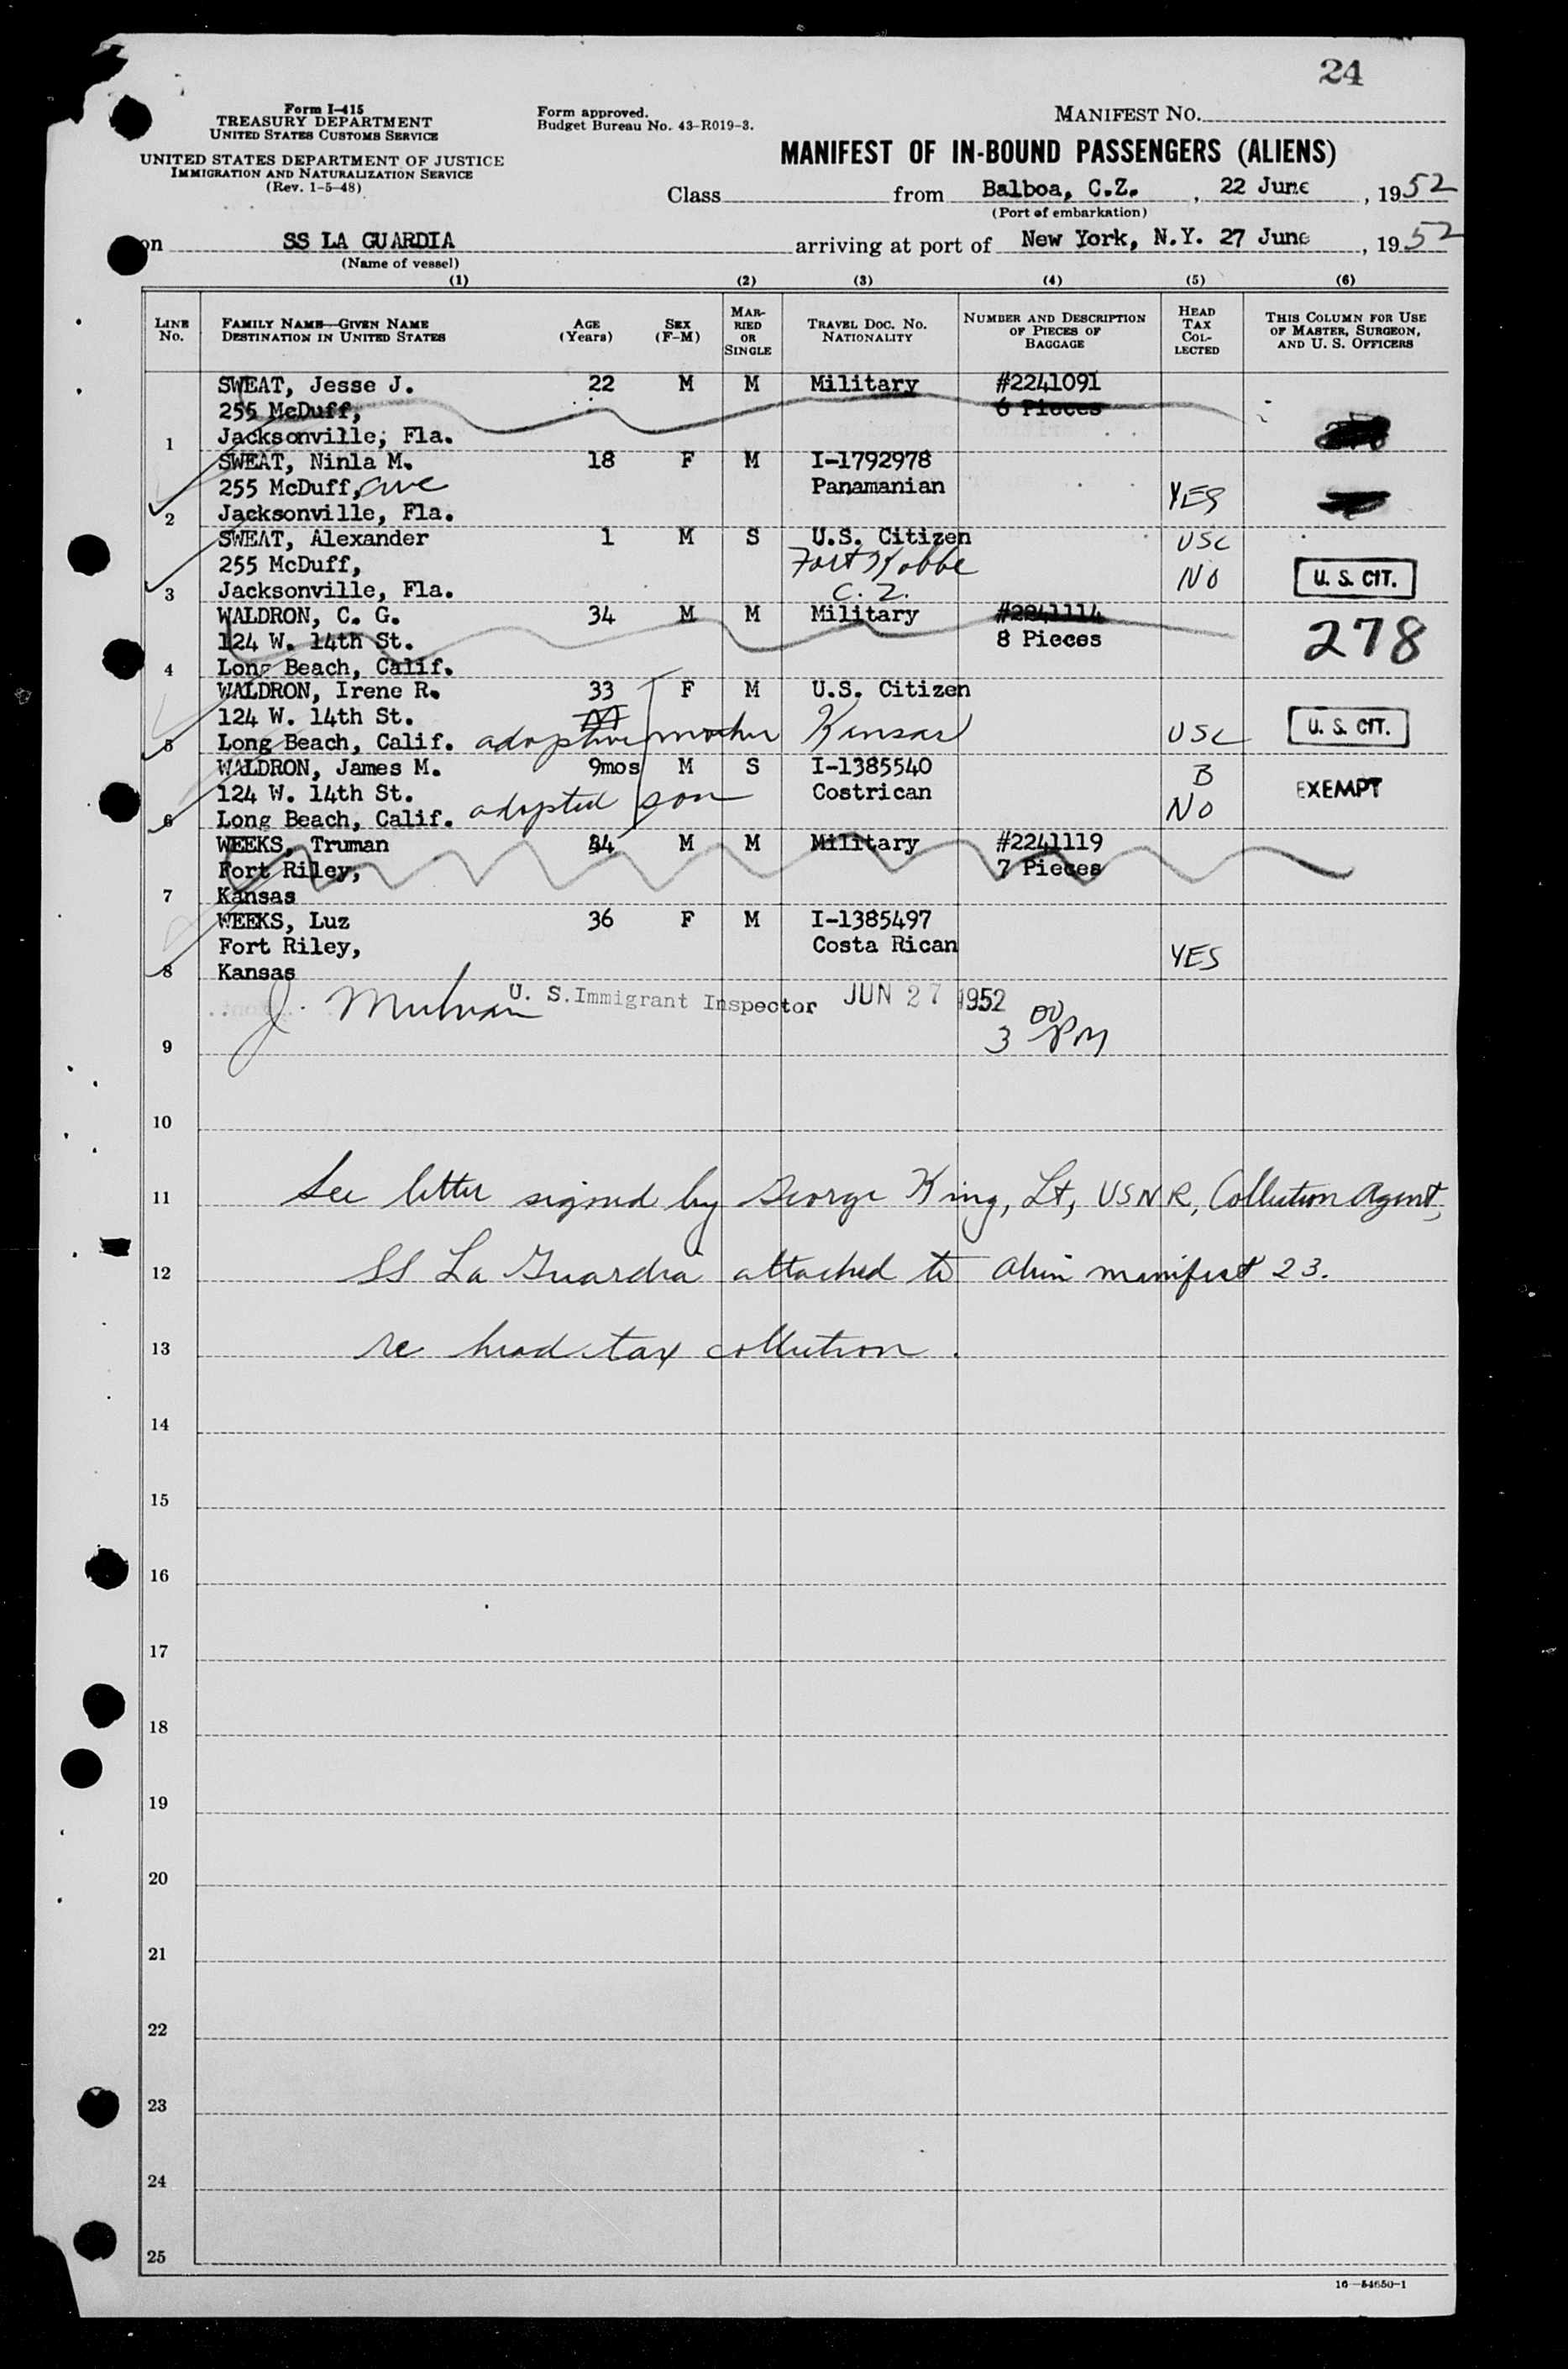 24
Form I-415
TREASURY DEPARTMENT
UNITED STATES CUSTOMS SERVICE
UNITED STATES DEPARTMENT OF JUSTICE
IMMIGRATION AND NATURALIZATION SERVICE
(Rev. 1-5-48)
Form approved.
Budget Bureau No. 43-R019-3.
MANIFEST NO.
MANIFEST OF IN-BOUND PASSENGERS (ALIENS)
Class from Balboa, C.Z. , 22 June , 1952
(Port of embarkation)
on SS LA GUARDIA arriving at port of New York, N.Y. 27 June , 1952
(Name of vessel)
(1) (2) (3) (4) (5) (6)
LINE No. FAMILY NAME—GIVEN NAME DESTINATION IN UNITED STATES AGE (Years) SEX (F-M) MARRIED OR SINGLE TRAVEL DOC. NO. NATIONALITY NUMBER AND DESCRIPTION OF PIECES OF BAGGAGE HEAD TAX COLLECTED THIS COLUMN FOR USE OF MASTER, SURGEON, AND U. S. OFFICERS
SWEAT, Jesse J. 22 M M Military #2241091
255 McDuff, 6 Pieces
1 Jacksonville, Fla.
SWEAT, Ninla M. 18 F M I-1792978
255 McDuff, ave Panamanian YES
2 Jacksonville, Fla.
SWEAT, Alexander 1 M S U.S. Citizen USC
255 McDuff, Fort Kobbe NO U. S. CIT.
3 Jacksonville, Fla. C. Z.
WALDRON, C. G. 34 M M Military #2241114
124 W. 14th St. 8 Pieces 278
4 Long Beach, Calif.
WALDRON, Irene R. 33 F M U.S. Citizen
124 W. 14th St. M
5 Long Beach, Calif. adoptive mother Kansas USC U. S. CIT.
WALDRON, James M. 9mos M S I-1385540 B EXEMPT
124 W. 14th St. Costrican
6 Long Beach, Calif. adopted son NO
WEEKS, Truman 34 M M Military #2241119
Fort Riley, 7 Pieces
7 Kansas
WEEKS, Luz 36 F M I-1385497
Fort Riley, Costa Rican YES
8 Kansas
J. U. S. Immigrant Inspector JUN 27 1952
9 3 00 PM
10
11 See letter signed by George King, Lt, USNR, Collection Agent,
12 SS La Guardia attached to Alien manifest 23.
13 re head tax collection.
14
15
16
17
18
19
20
21
22
23
24
25
16—54650-1